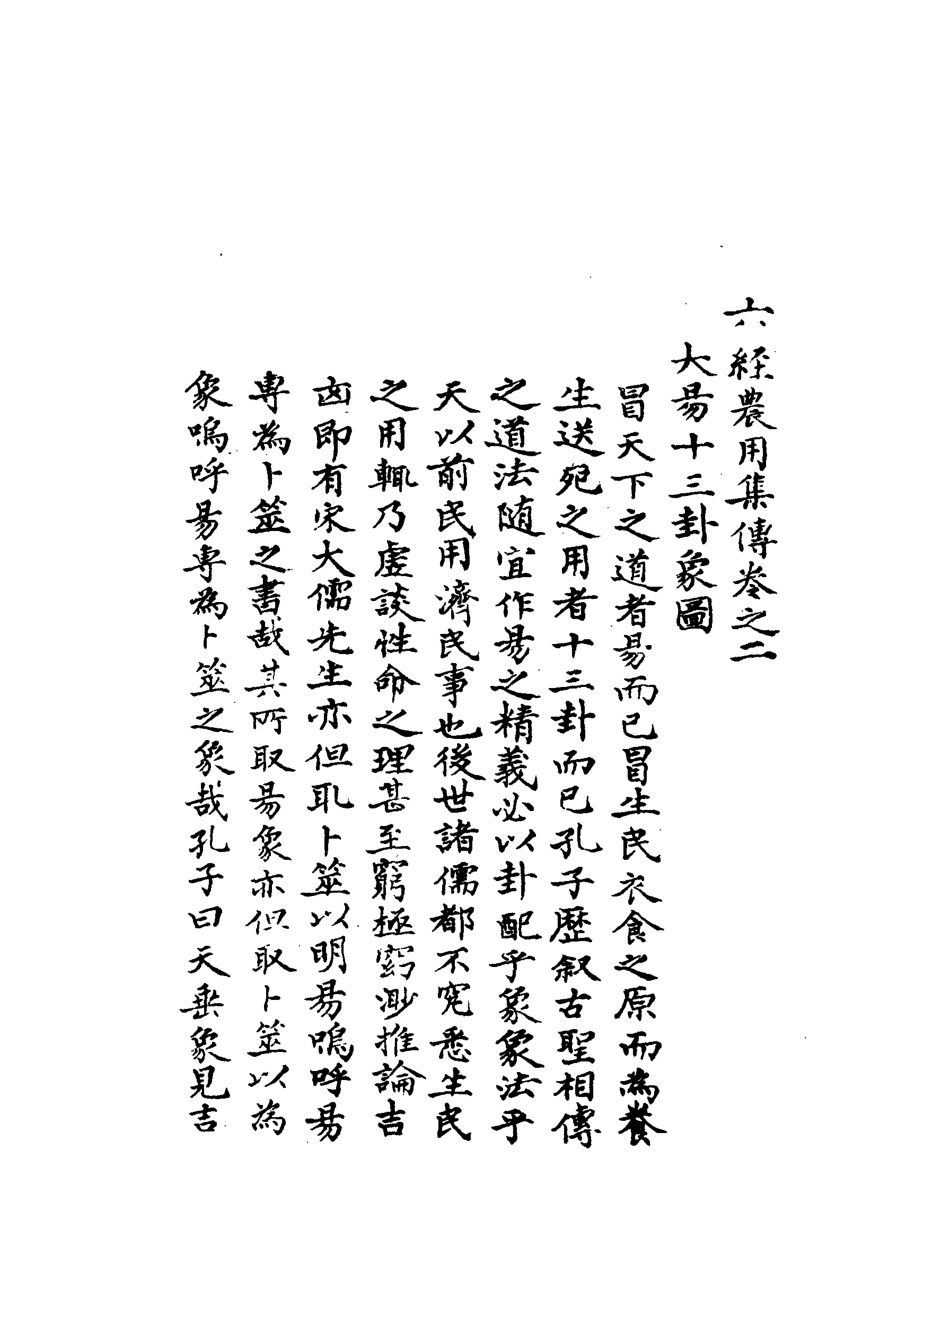 六経農用集傳巻之二
大昜十三卦象圖
冒天下之道者昜而已冒生民衣食之原而為養
生送死之用者十三卦而已孔子歴叙古聖相傳
之道法随宜作昜之精義必以卦配乎象象法乎
天以前民用濟民事也後世諸儒都不究悉生民
之用輒乃虗談性命之理甚至窮極窈渺推論吉
凶即有宋大儒先生亦但取卜筮以明昜嗚呼昜
専為卜筮之書哉其所取昜象亦但取卜筮以為
象嗚呼昜専為卜筮之象哉孔子曰天垂象見吉